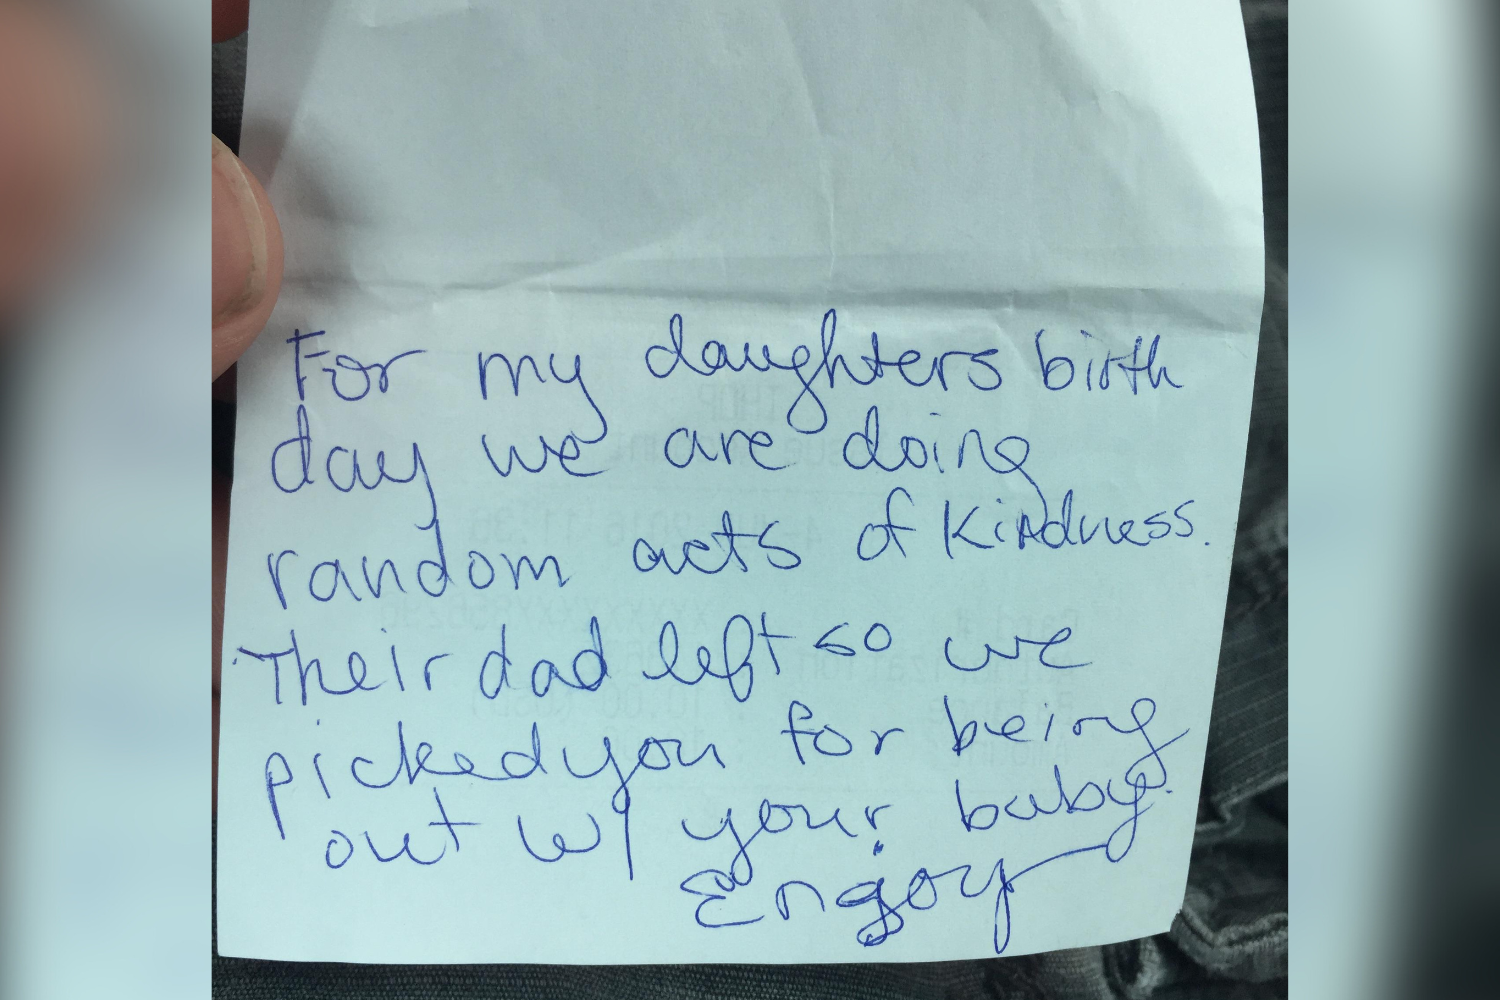 For my daughters birth
day we are doing
random acts of Kindness.
Their dad left so we
picked you for being
out w/ your baby.
Enjoy